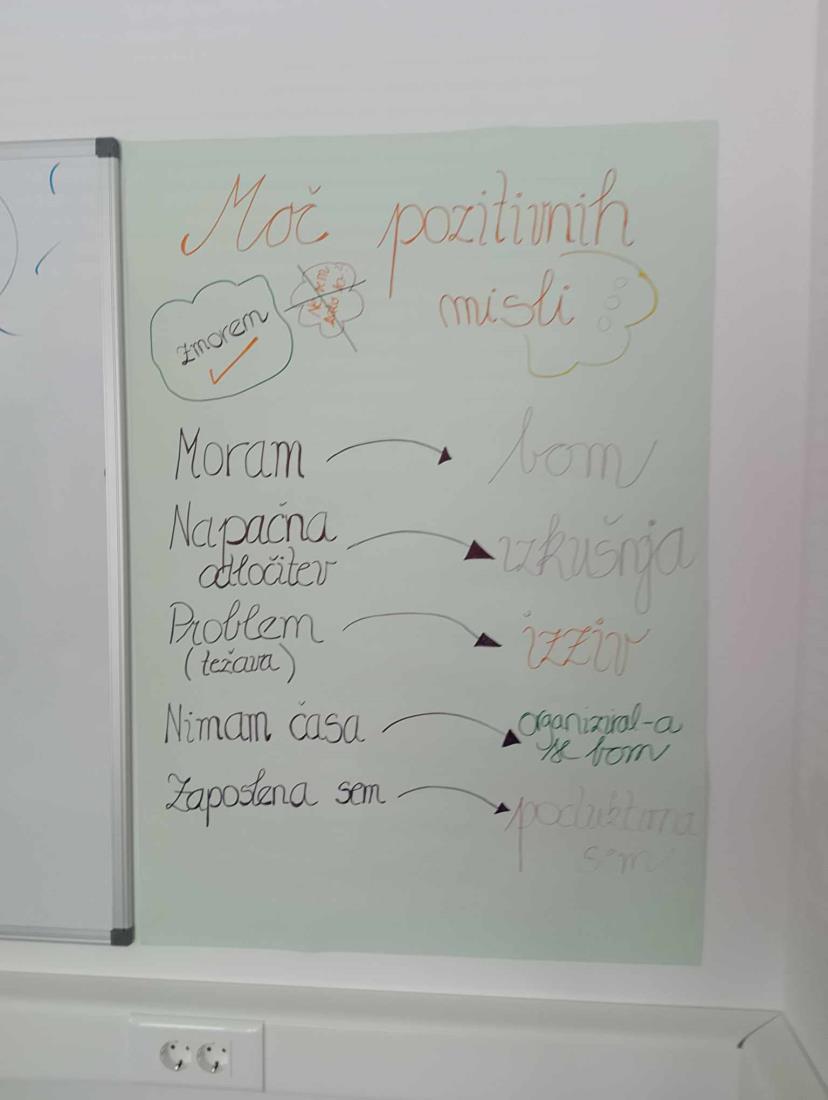 Moč pozitivnih
misli
zmorem
Moram bom
Napačna izkušnja
odločitev
Problem izziv
(težava)
Nimam časa organiziral-a
se bom
Zaposlena sem produktivna
sem